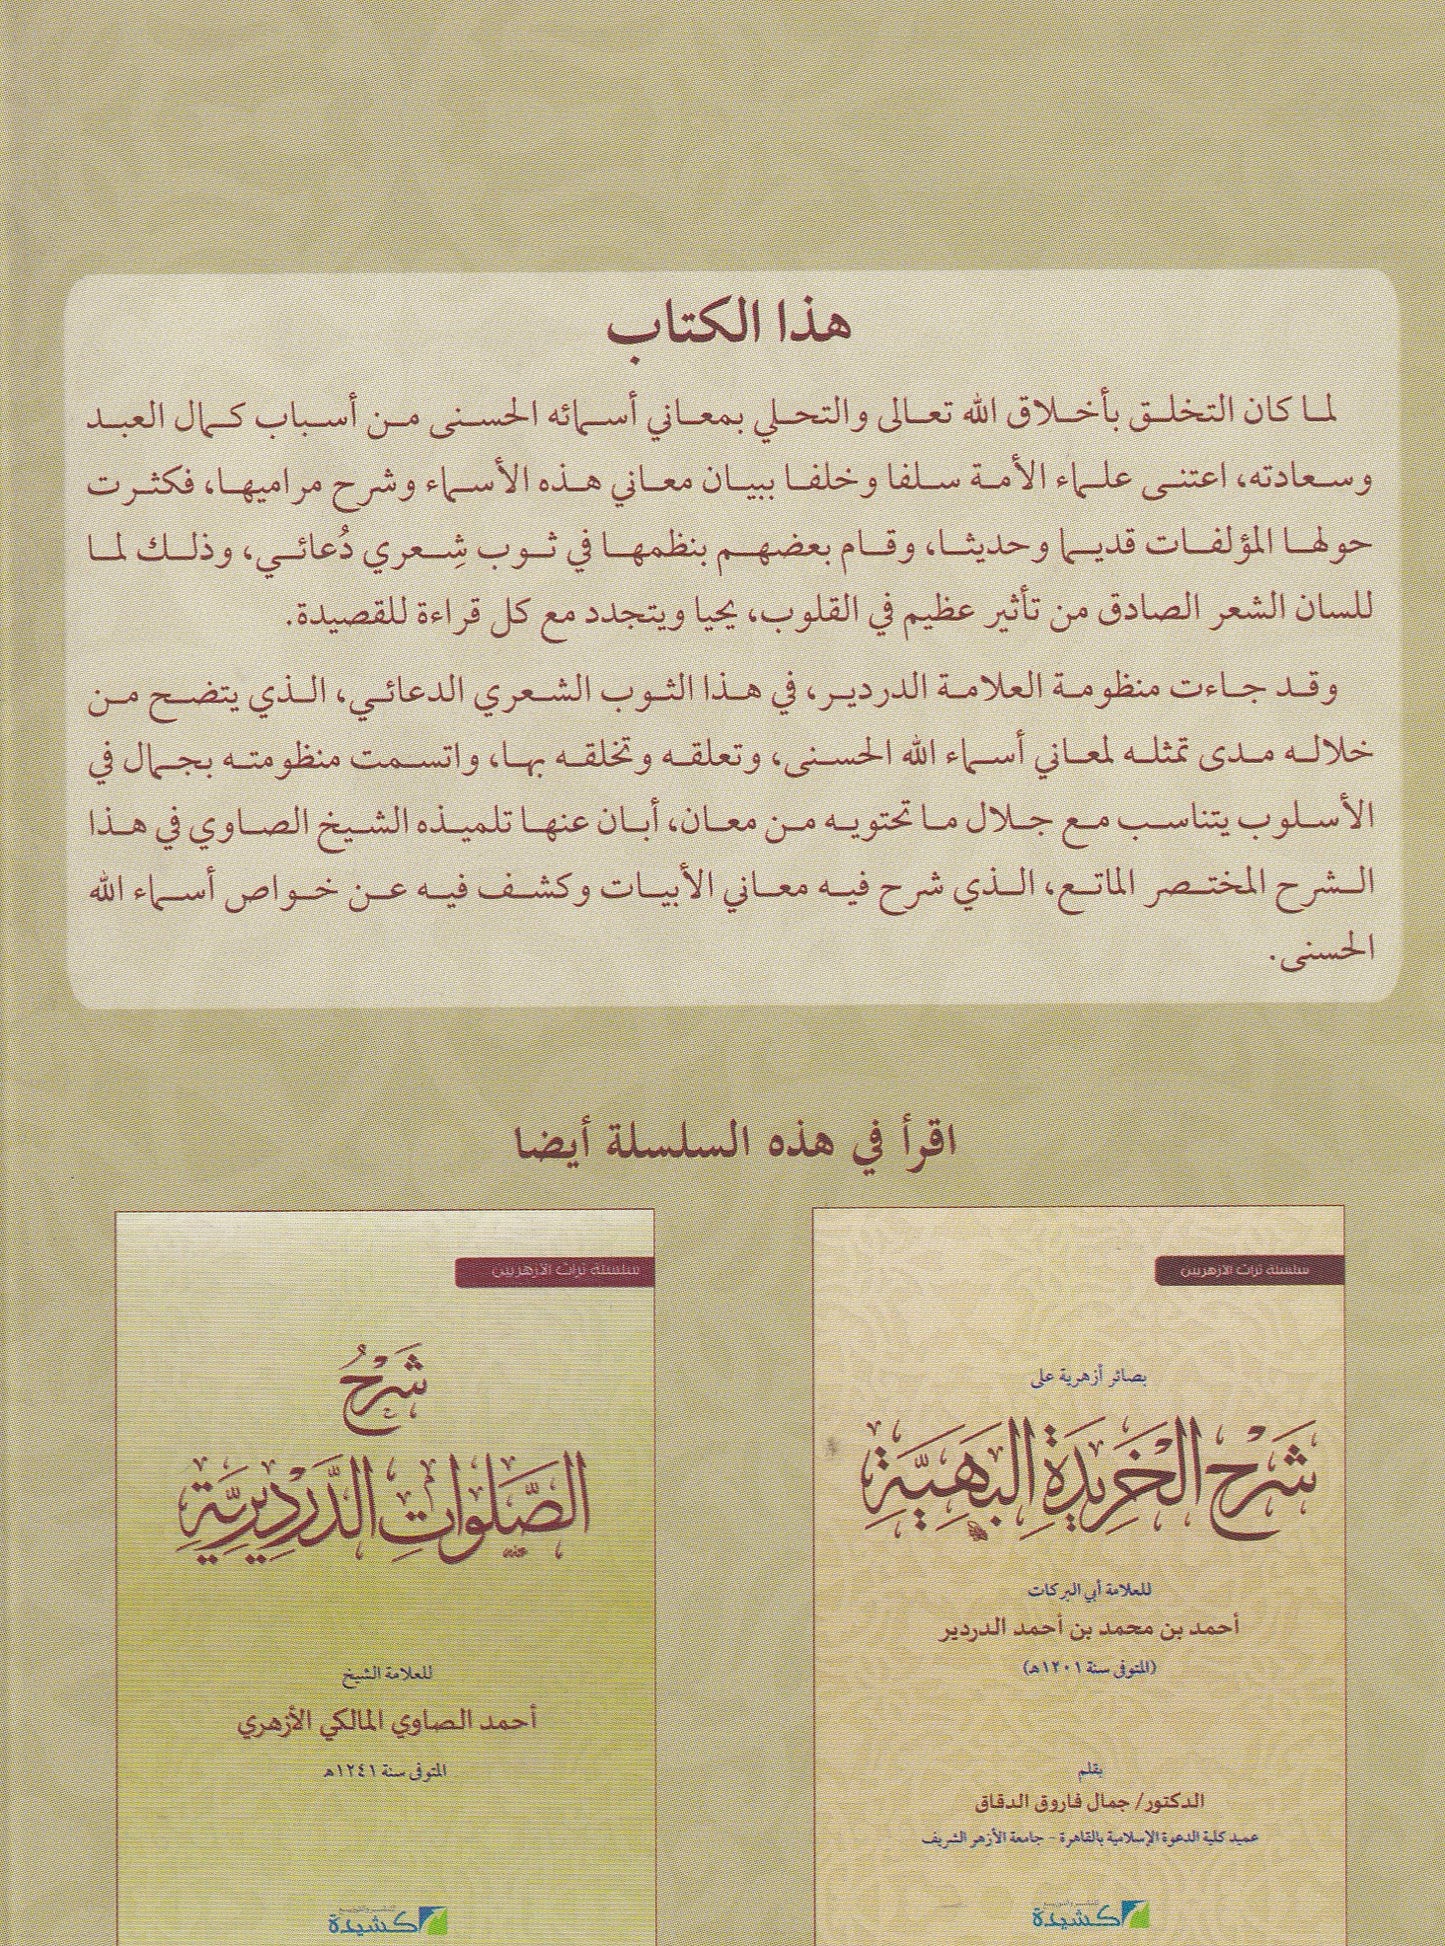 هذا الكتاب
لما كان التخلق بأخلاق الله تعالى والتحلي بمعاني أسمائه الحسنى من أسباب كمال العبد
وسعادته، اعتنى علماء الأمة سلفا وخلفا ببيان معاني هذه الأسماء وشرح مراميها، فكثرت
حولها المؤلفات قديما وحديثا، وقام بعضهم بنظمها في ثوب شِعري دُعائي، وذلك لما
للسان الشعر الصادق من تأثير عظيم في القلوب، يحيا ويتجدد مع كل قراءة للقصيدة.
وقد جاءت منظومة العلامة الدردير، في هذا الثوب الشعري الدعائي، الذي يتضح من
خلاله مدى تمثله لمعاني أسماء الله الحسنى، وتعلقه وتخلقه بها، واتسمت منظومته بجمال في
الأسلوب يتناسب مع جلال ما تحتويه من معان، أبان عنها تلميذه الشيخ الصاوي في هذا
الشرح المختصر الماتع، الذي شرح فيه معاني الأبيات وكشف فيه عن خواص أسماء الله
الحسنى.
اقرأ في هذه السلسلة أيضا
سلسلة تراث الأزهريين
بصائر أزهرية على
شَرْح الخَرِيدَةِ البَهِيَّةِ
للعلامة أبي البركات
أحمد بن محمد بن أحمد الدردير
(المتوفى سنة ١٢٠١هـ)
بقلم
الدكتور/ جمال فاروق الدقاق
عميد كلية الدعوة الإسلامية بالقاهرة - جامعة الأزهر الشريف
كشيدة
للنشر والتوزيع
سلسلة تراث الأزهريين
شَرْحُ
الصَّلَوَاتِ الدَّرْدِيرِيَّةِ
للعلامة الشيخ
أحمد الصاوي المالكي الأزهري
المتوفى سنة ١٢٤١هـ
كشيدة
للنشر والتوزيع